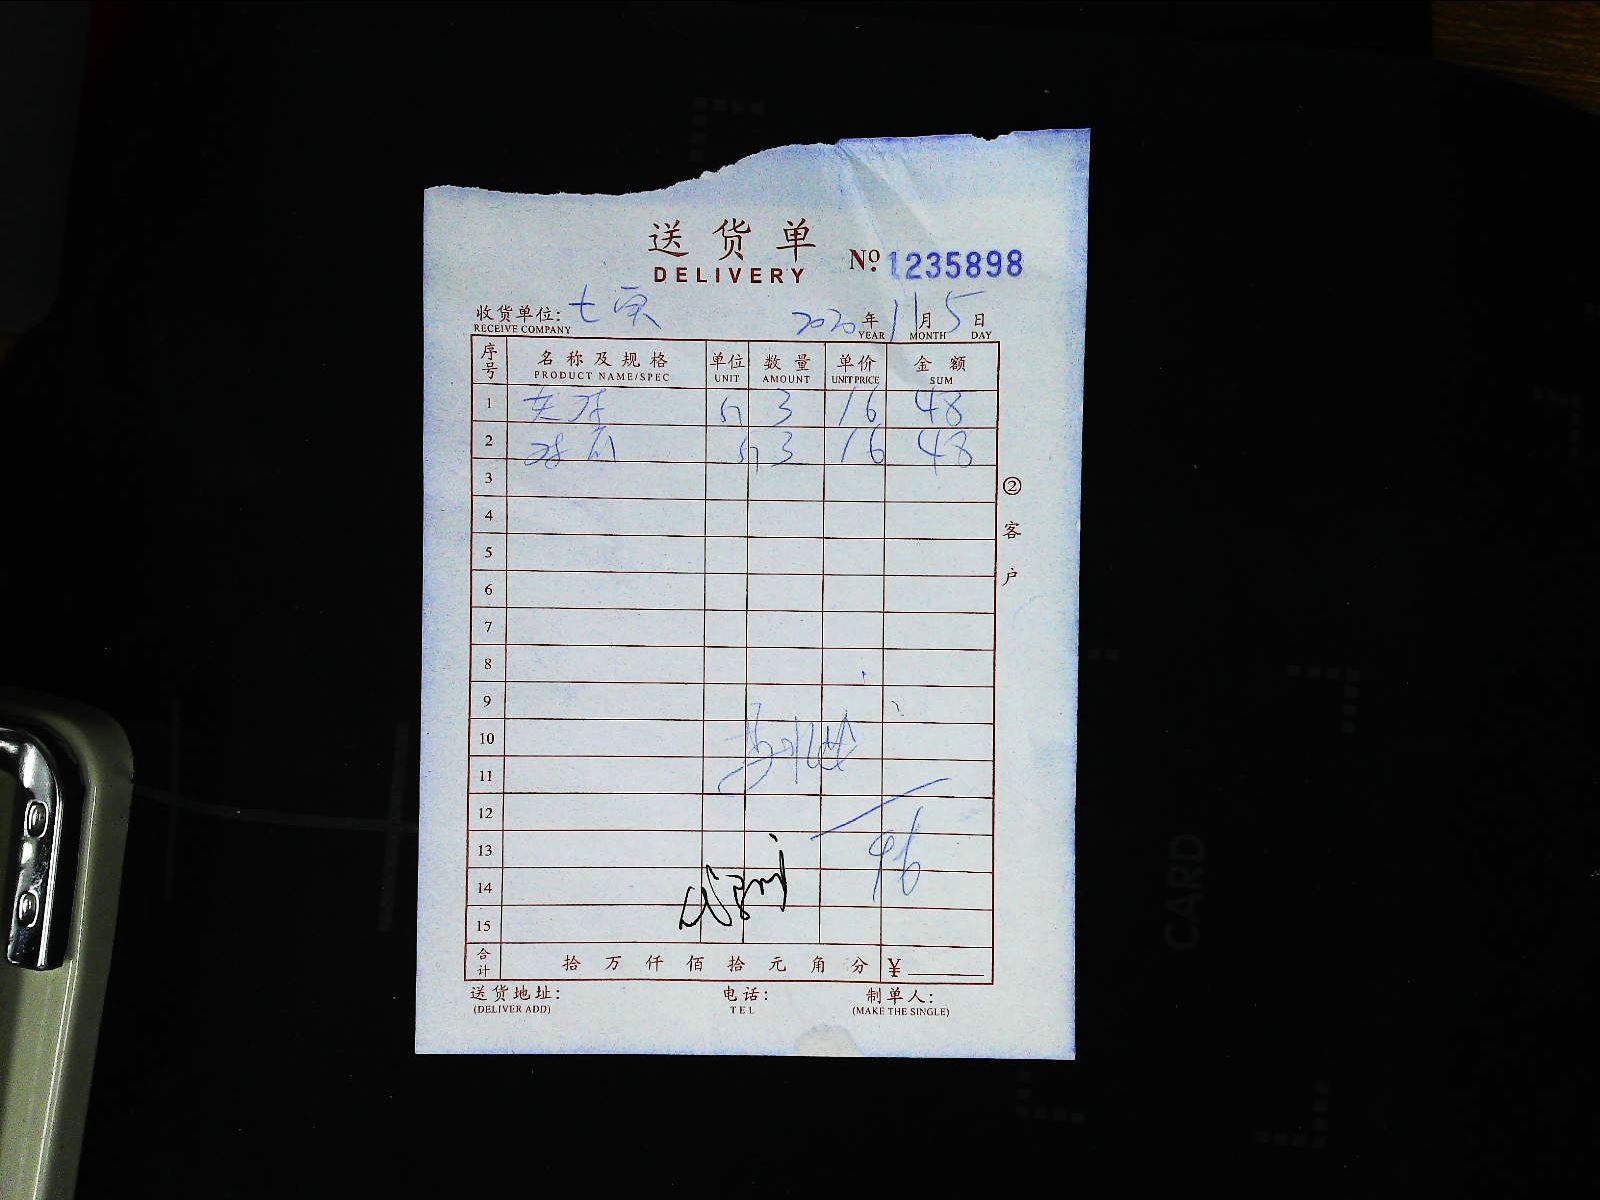 送货单
DELIVERY
Nº 1235898
收货单位: 七
RECEIVE COMPANY
2020年11月5日
YEAR MONTH DAY
序号 名称及规格 单位 数量 单价 金额
PRODUCT NAME/SPEC UNIT AMOUNT UNIT PRICE SUM
1 3 16 48
2 3 16 48
3
4
5
6
7
8
9
10
11
12
13
14
15
96
合计 拾 万 仟 佰 拾 元 角 分 ¥
② 客户
送货地址: 电话: 制单人:
(DELIVER ADD) TEL (MAKE THE SINGLE)
CARD